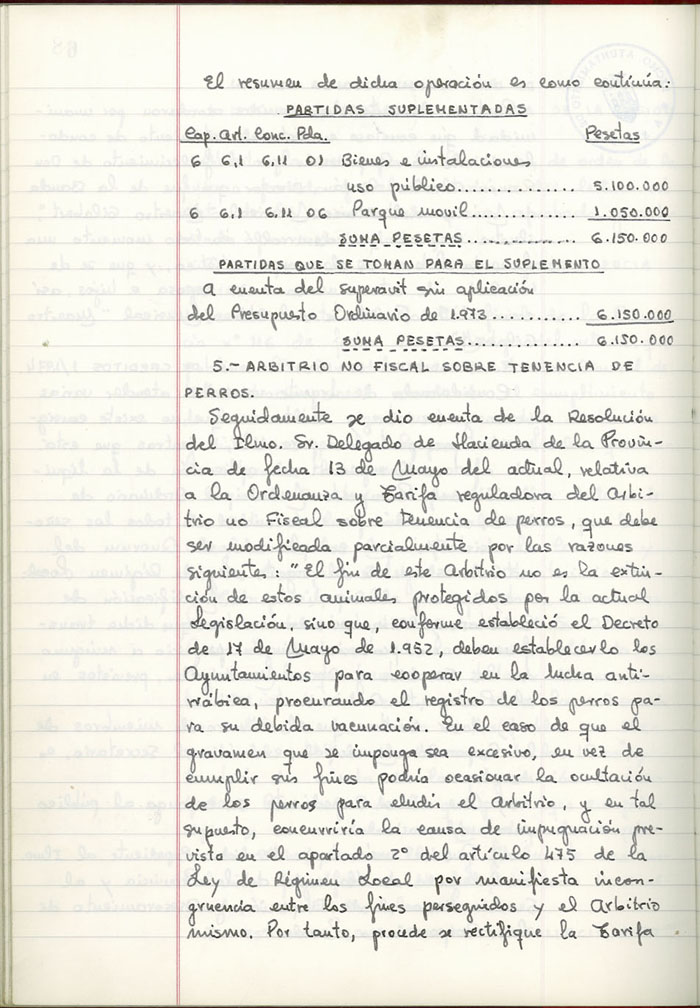 El resumen de dicha operación es como continúa:
PARTIDAS SUPLEMENTADAS
Cap. Art. Conc. Pda. Pesetas
6 6,1 6,11 01 Bienes e instalaciones
uso público............... 5.100.000
6 6,1 6,11 06 Parque movil............ 1.050.000
SUMA PESETAS............. 6.150.000
PARTIDAS QUE SE TOMAN PARA EL SUPLEMENTO
A cuenta del superavit sin aplicación
del Presupuesto Ordinario de 1.973........... 6.150.000
SUMA PESETAS............. 6.150.000
5.- ARBITRIO NO FISCAL SOBRE TENENCIA DE
PERROS.
Seguidamente se dio cuenta de la Resolución
del Ilmo. Sr. Delegado de Hacienda de la Provin-
cia de fecha 13 de Mayo del actual, relativa
a la Ordenanza y Tarifa reguladora del Arbi-
trio no Fiscal sobre Tenencia de perros, que debe
ser modificada parcialmente por las razones
siguientes: "El fin de este Arbitrio no es la extin-
ción de estos animales protegidos por la actual
Legislación, sino que, conforme estableció el Decreto
de 17 de Mayo de 1.952, deben establecerlo los
Ayuntamientos para cooperar en la lucha anti-
rrábica, procurando el registro de los perros pa-
ra su debida vacunación. En el caso de que el
gravamen que se imponga sea excesivo, en vez de
cumplir sus fines podría ocasionar la ocultación
de los perros para eludir el arbitrio, y en tal
supuesto, concurriría la causa de impugnación pre-
vista en el apartado 2º del artículo 475 de la
Ley de Régimen Local por manifiesta incon-
gruencia entre los fines perseguidos y el Arbitrio
mismo. Por tanto, procede se rectifique la Tarifa